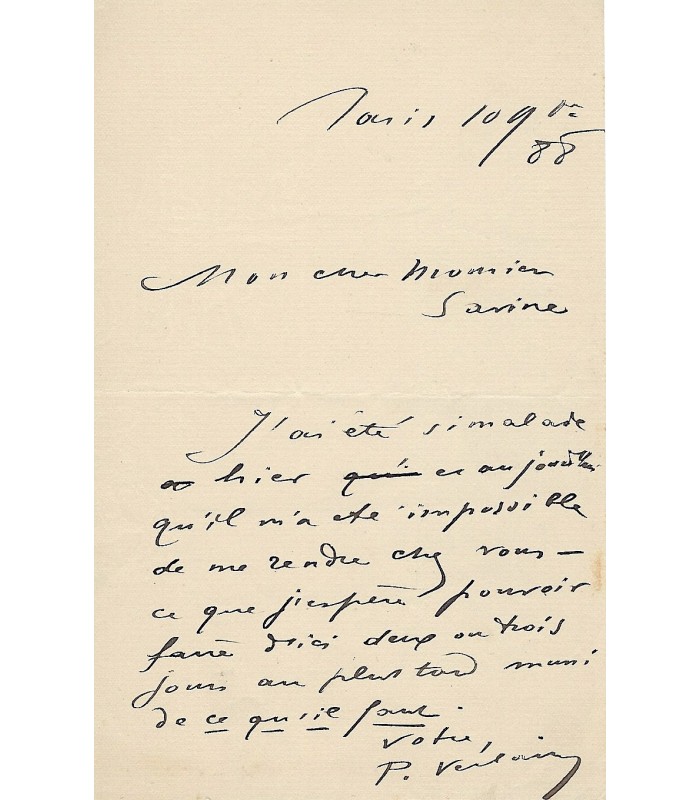 Paris 10 9bre
88
Mon cher Monsieur
Savine
J'ai été si malade
hier et aujourd'hui
qu'il m'a été impossible
de me rendre chez vous —
ce que j'espère pouvoir
faire d'ici deux ou trois
jours au plus tard muni
de ce qu'il faut.
Votre,
P. Verlaine